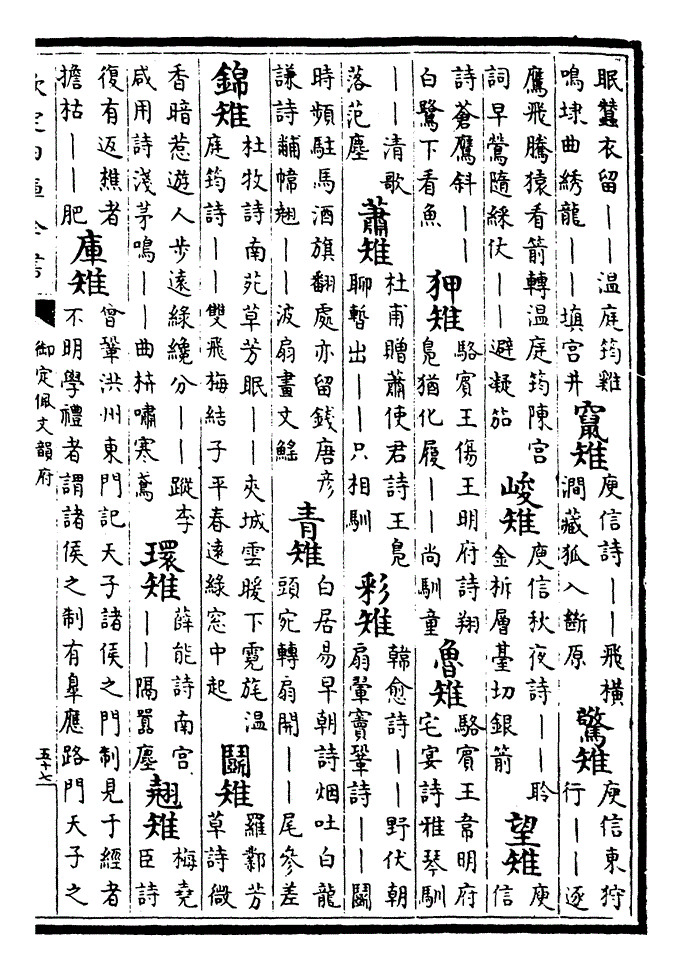 眠蠶衣留——溫庭筠雞
鳴埭曲綉龍——填宮井
竄雉
庾信詩——飛橫
澗藏狐入斷原
驚雉
庾信東狩
行——逐
鷹飛騰猿看箭轉溫庭筠陳宮
詞早鶯隨綵仗——避凝笳
峻雉
庾信秋夜詩——聆
金柝層臺切銀箭
望雉
庾
信
詩蒼鷹斜——
白鷺下看魚
狎雉
駱賓王傷王明府詩翔
鳬猶化履——尚馴童
魯雉
駱賓王韋明府
宅宴詩雅琴馴
——清歌
落范塵
蕭雉
杜甫贈蕭使君詩王鳬
聊暫出——只相馴
彩雉
韓愈詩——野伏朝
扇翬竇鞏詩——闘
時頻駐馬酒旗翻處亦留錢唐彥
謙詩黼幃翹——波扇畫文鰩
青雉
白居易早朝詩烟吐白龍
頭宛轉扇開——尾參差
錦雉
杜牧詩南苑草芳眠——夾城雲暖下霓旄溫
庭筠詩——雙飛梅結子平春遠綠窓中起
鬬雉
羅鄴芳
草詩微
香暗惹遊人步遠綠纔分——蹤李
咸用詩淺茅鳴——曲枿嘯寒鳶
環雉
薛能詩南宮
——隔囂塵
翹雉
梅堯
臣詩
復有返樵者
擔枯——肥
庫雉
曾鞏洪州東門記天子諸侯之門制見于經者
不明學禮者謂諸侯之制有臯應路門天子之
欽定四庫全書
御定佩文韻府
五十七